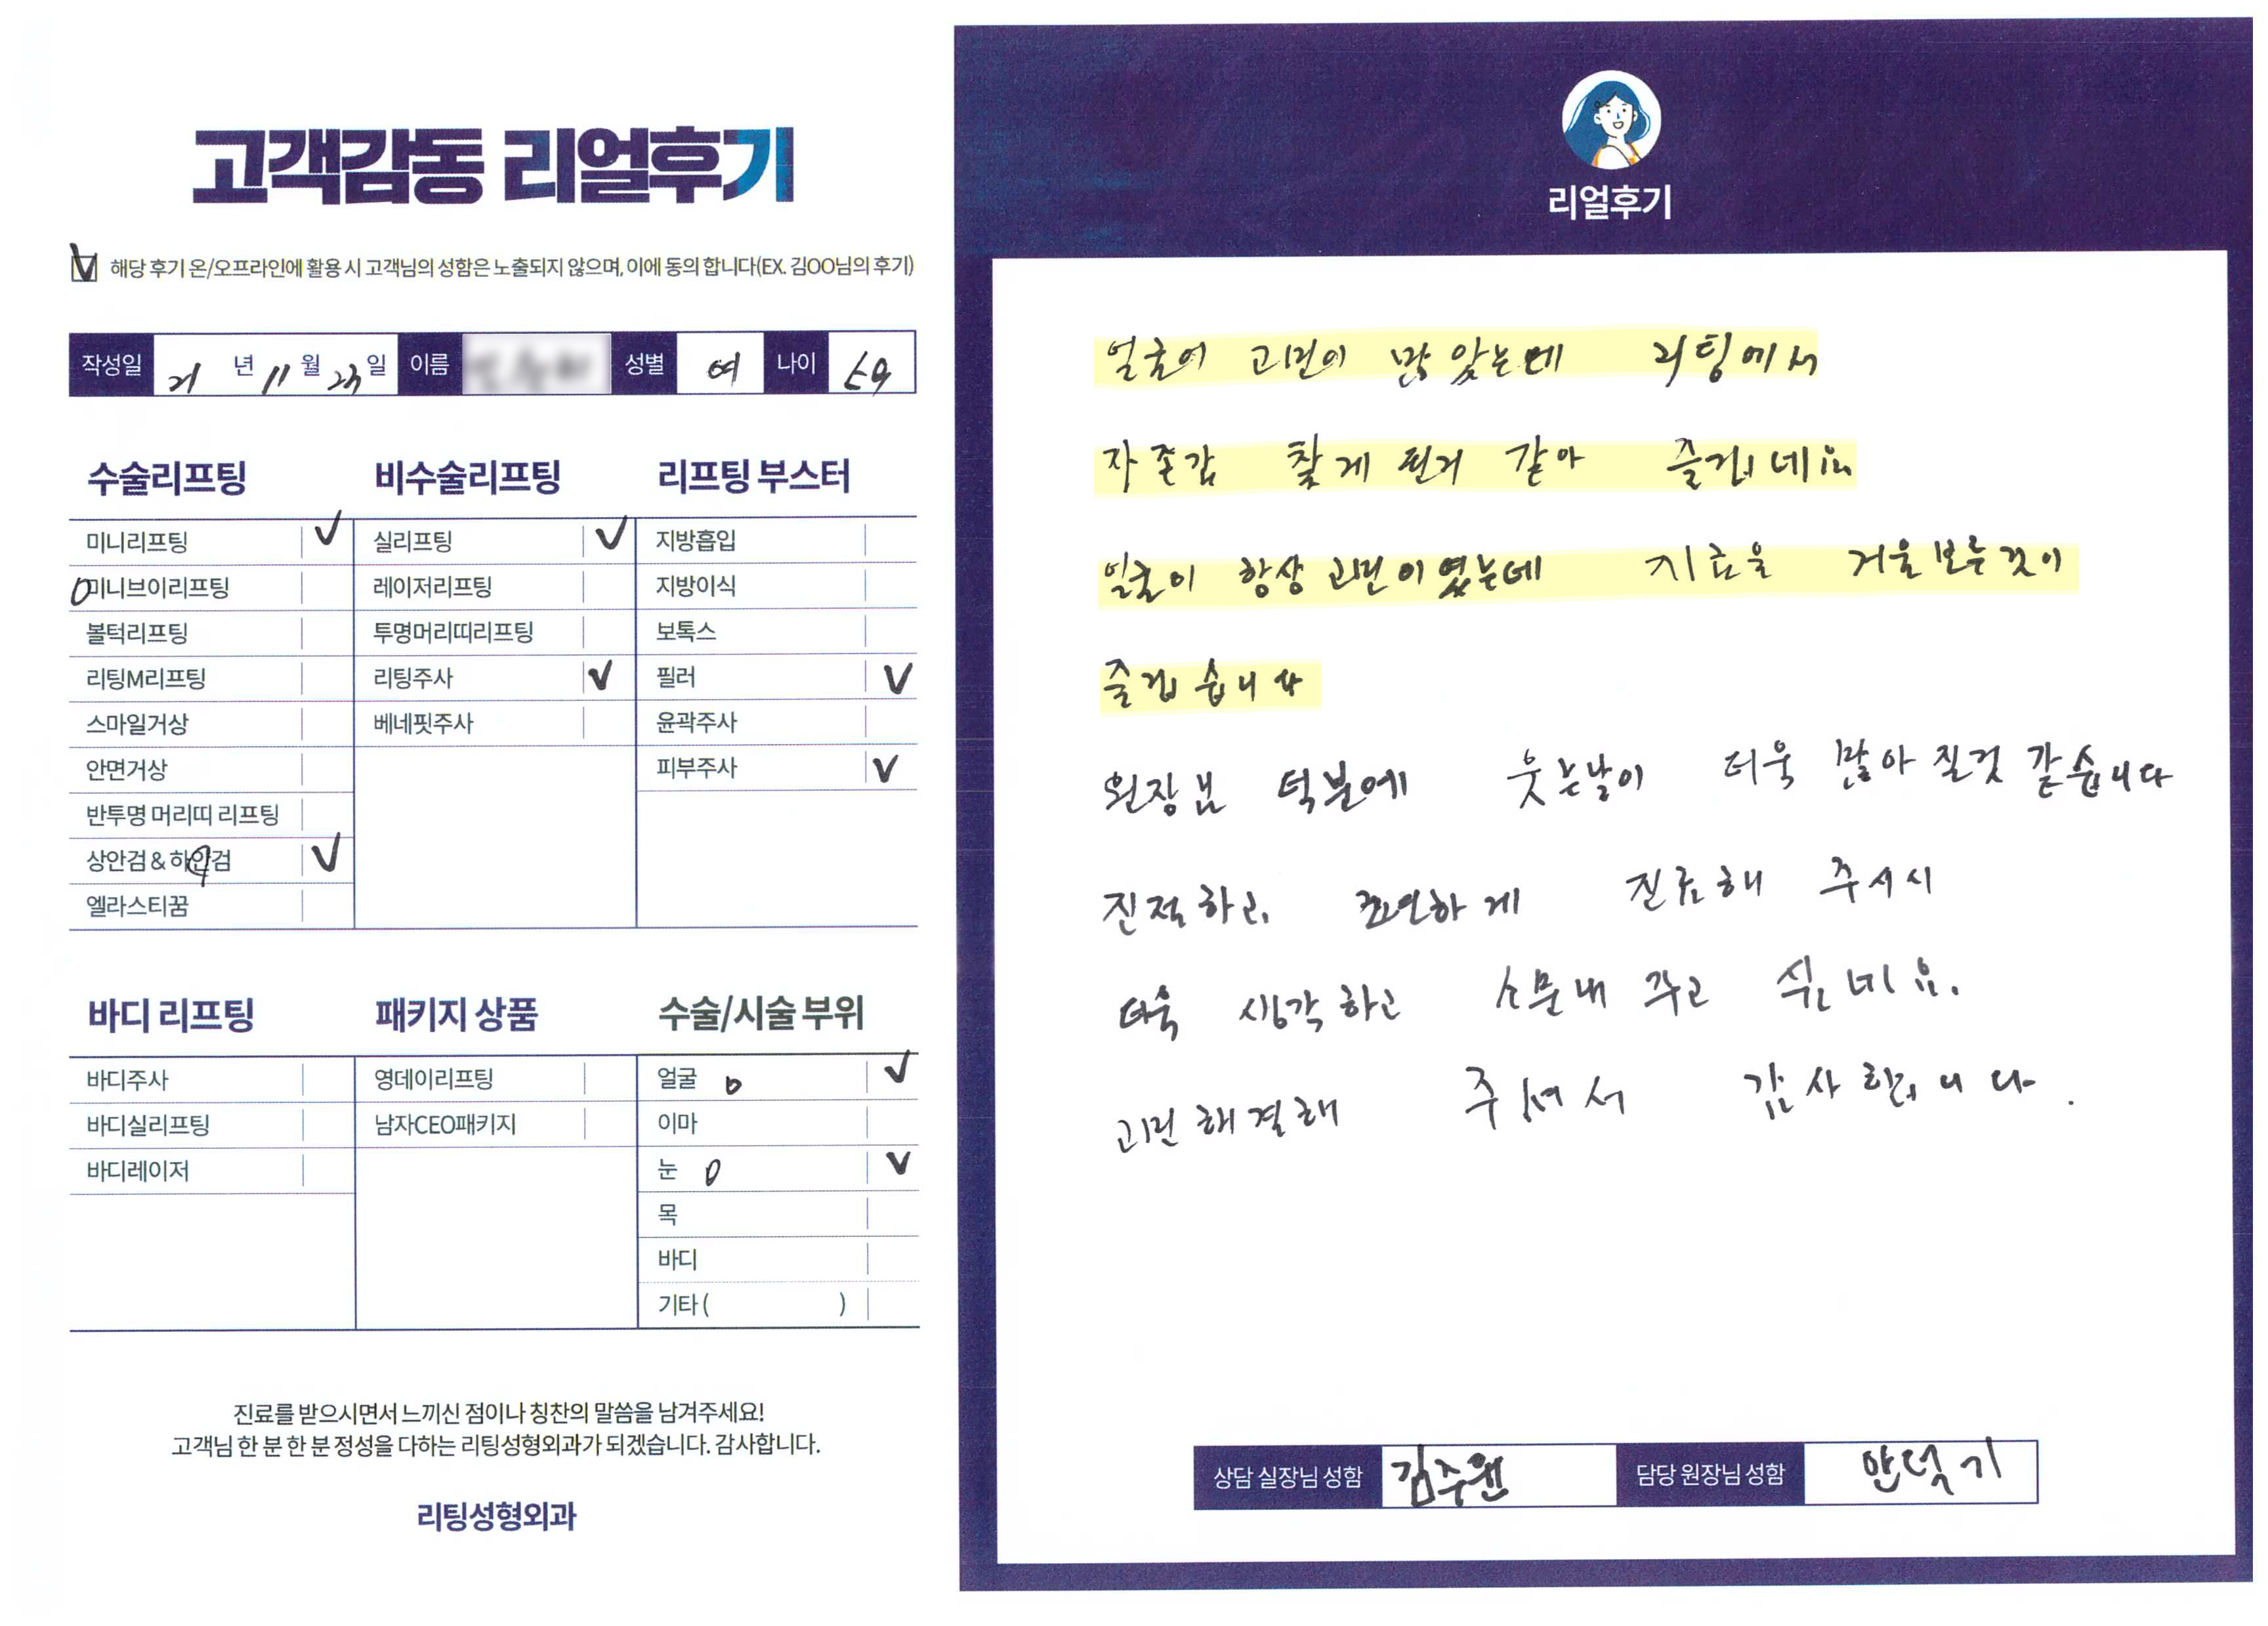 고객감동 리얼후기
해당 후기 온/오프라인에 활용 시 고객님의 성함은 노출되지 않으며, 이에 동의 합니다(EX. 김OO님의 후기)
작성일 21 년 11 월 23 일 이름 성별 여 나이
수술리프팅
미니리프팅
미니브이리프팅
볼턱리프팅
리팅M리프팅
스마일거상
안면거상
반투명 머리띠 리프팅
상안검 & 하안검
엘라스티꿈
비수술리프팅
실리프팅
레이저리프팅
투명머리띠리프팅
리팅주사
베네핏주사
리프팅 부스터
지방흡입
지방이식
보톡스
필러
윤곽주사
피부주사
바디 리프팅
바디주사
바디실리프팅
바디레이저
패키지 상품
영데이리프팅
남자CEO패키지
수술/시술 부위
얼굴
이마
눈
목
바디
기타 ( )
진료를 받으시면서 느끼신 점이나 칭찬의 말씀을 남겨주세요!
고객님 한 분 한 분 정성을 다하는 리팅성형외과가 되겠습니다. 감사합니다.
리팅성형외과
리얼후기
얼굴이 고민이 많았는데 리팅에서
자존감 찾게 된거 같아 즐겁네요
얼굴이 항상 고민이였는데 지금은 거울보는것이
즐겁습니다
원장님 덕분에 웃는날이 더욱 많아질것 같습니다
친절하고 편하게 진료해 주셔서
더욱 생각하고 소문내 주고 싶네요.
고민해결해 주셔서 감사합니다.
상담 실장님 성함 김주원 담당 원장님 성함 안덕기